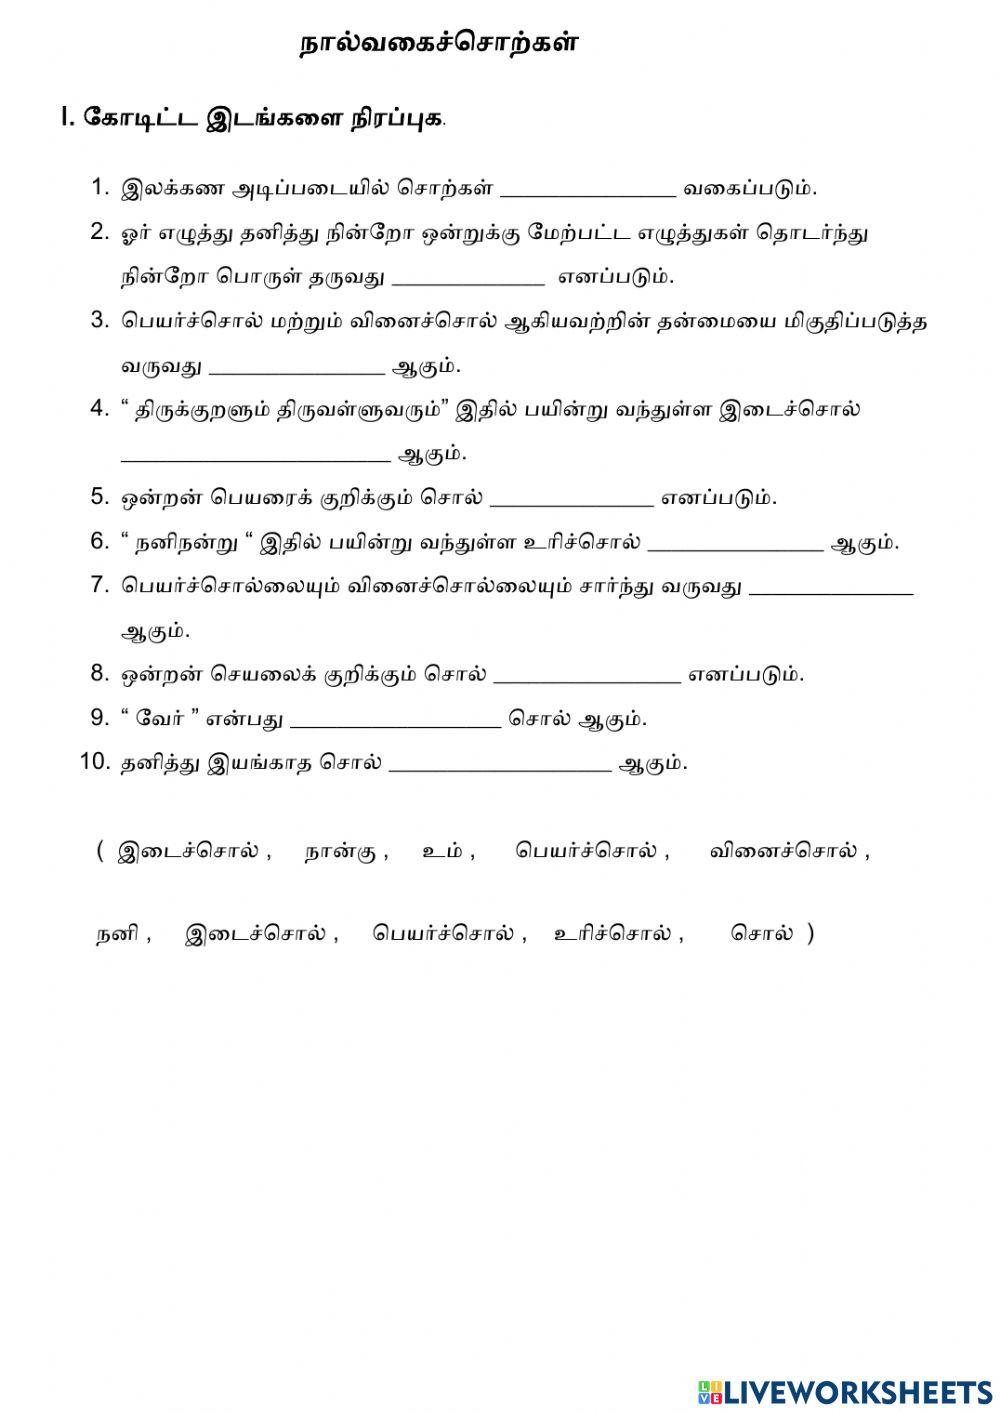 நால்வகைச்சொற்கள்
I. கோடிட்ட இடங்களை நிரப்புக.
1. இலக்கண அடிப்படையில் சொற்கள் _______________ வகைப்படும்.
2. ஓர் எழுத்து தனித்து நின்றோ ஒன்றுக்கு மேற்பட்ட எழுத்துகள் தொடர்ந்து
நின்றோ பொருள் தருவது _____________ எனப்படும்.
3. பெயர்ச்சொல் மற்றும் வினைச்சொல் ஆகியவற்றின் தன்மையை மிகுதிப்படுத்த
வருவது _______________ ஆகும்.
4. “ திருக்குறளும் திருவள்ளுவரும்” இதில் பயின்று வந்துள்ள இடைச்சொல்
_______________________ ஆகும்.
5. ஒன்றன் பெயரைக் குறிக்கும் சொல் ______________ எனப்படும்.
6. “ நனிநன்று “ இதில் பயின்று வந்துள்ள உரிச்சொல் _______________ ஆகும்.
7. பெயர்ச்சொல்லையும் வினைச்சொல்லையும் சார்ந்து வருவது ______________
ஆகும்.
8. ஒன்றன் செயலைக் குறிக்கும் சொல் ________________ எனப்படும்.
9. “ வேர் ” என்பது __________________ சொல் ஆகும்.
10. தனித்து இயங்காத சொல் ___________________ ஆகும்.
( இடைச்சொல் , நான்கு , உம் , பெயர்ச்சொல் , வினைச்சொல் ,
நனி , இடைச்சொல் , பெயர்ச்சொல் , உரிச்சொல் , சொல் )
LIVE LIVEWORKSHEETS